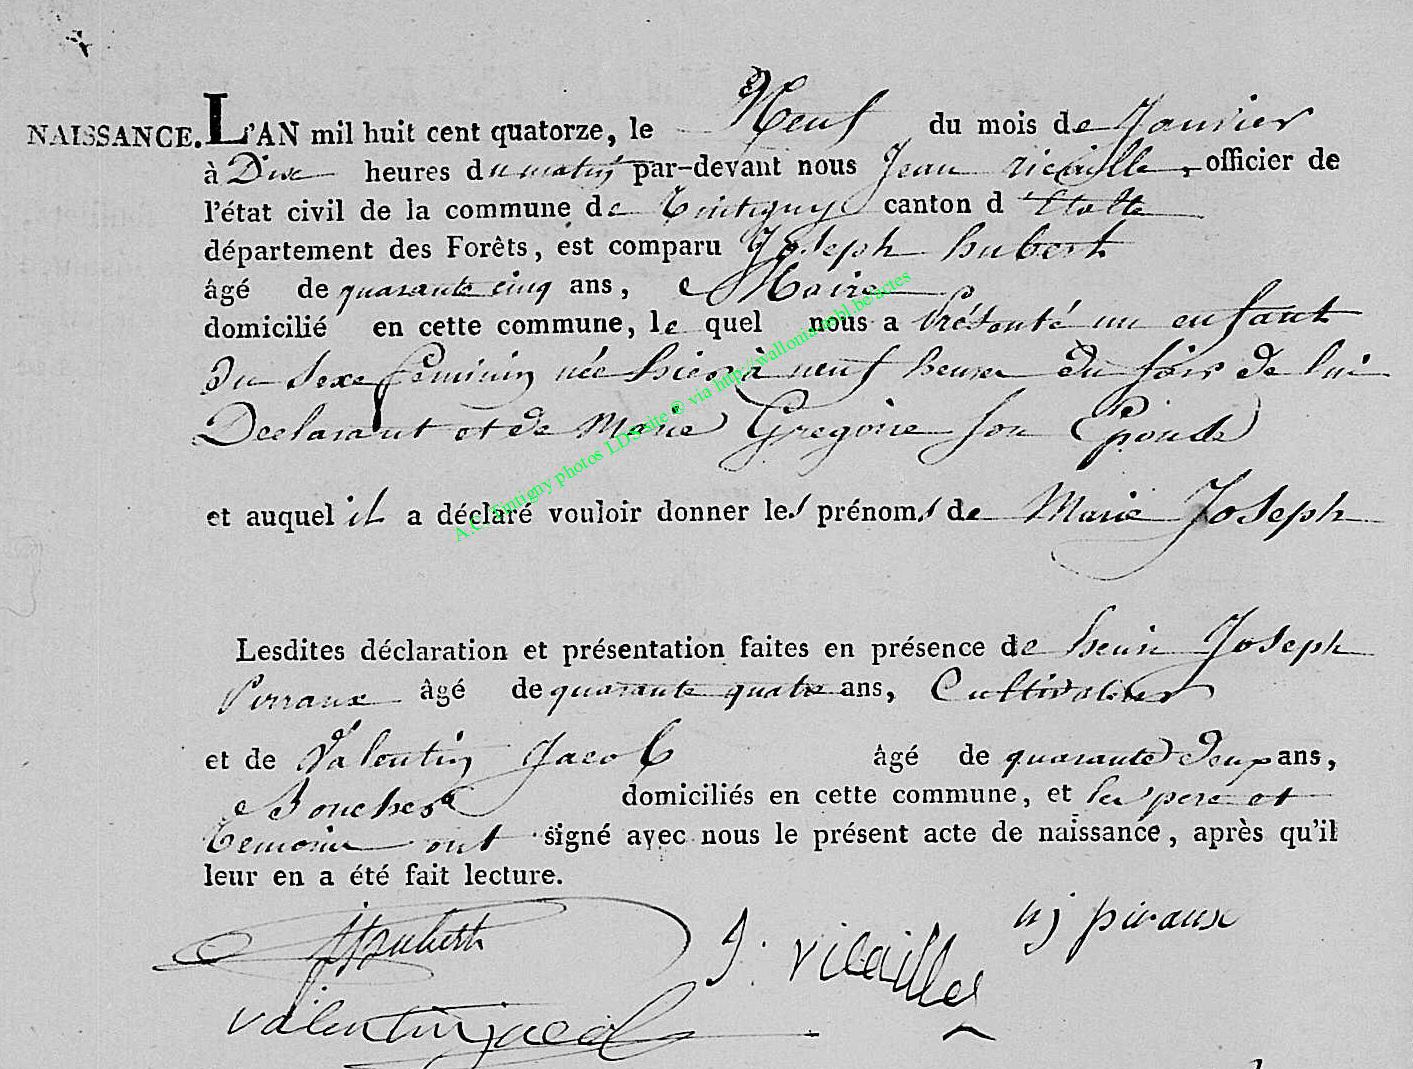 NAISSANCE. L'AN mil huit cent quatorze, le Neuf du mois de Janvier
à Dix heures du matin par-devant nous Jean vicaille, officier de
l'état civil de la commune de Tintigny canton d'Etalle
département des Forêts, est comparu Joseph hubert
âgé de quarante cinq ans, Maire
domicilié en cette commune, le quel nous a Présenté un enfant
Du Sexe féminin née hier à neuf heures du soir de lui
Declarant et de Marie Gregoire son Epouse
et auquel il a déclaré vouloir donner les prénoms de Marie Joseph
Lesdites déclaration et présentation faites en présence de henri Joseph
Pirraux âgé de quarante quatre ans, Cultivateur
et de Valentin Jacob âgé de quarante Deux ans,
Boucher domiciliés en cette commune, et les pere et
temoins ont signé avec nous le présent acte de naissance, après qu'il
leur en a été fait lecture.
JHubert
J. vicaille
hj piraux
valentin jacob
A.C. Tintigny photos LDS site ® via http://wallonia-asbl.be/actes